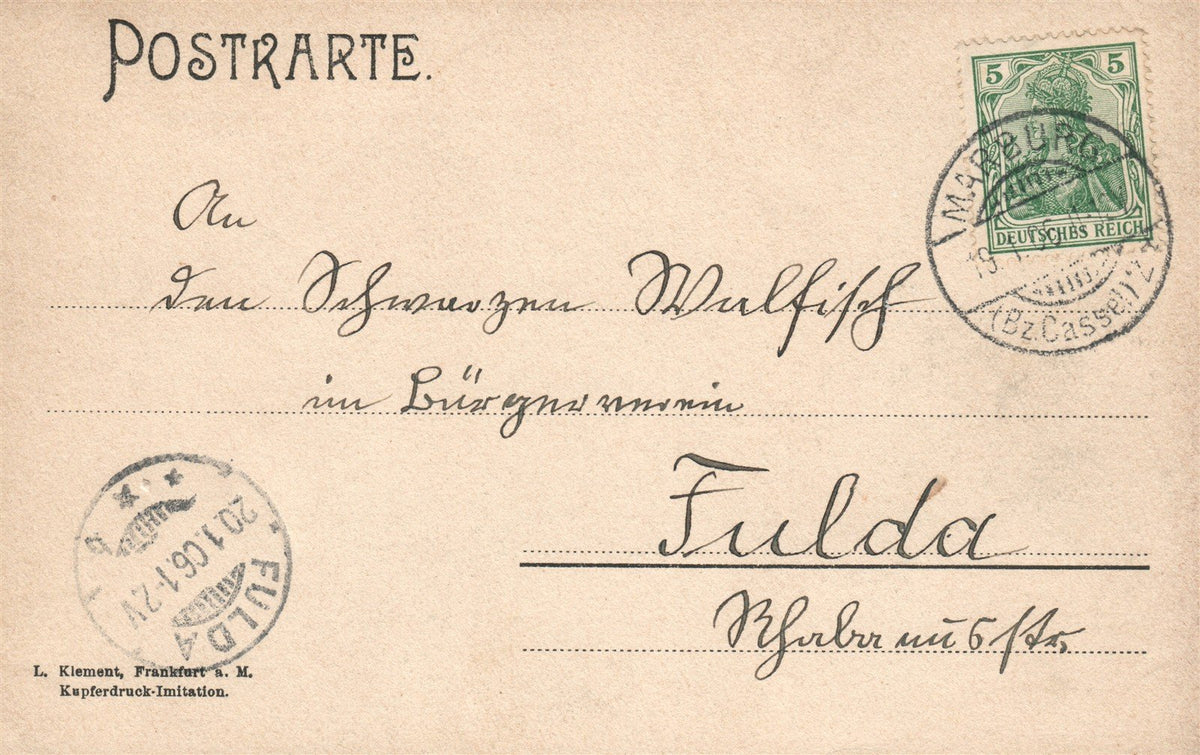 POSTKARTE.
5 5
DEUTSCHES REICH
MARBURG
19.1.06
(Bz.Cassel) 2
An
den Schwarzen Walfisch
im Bürgerverein
Fulda
Rhabanusstr.
FULDA
20.1.06.1-2V
L. Klement, Frankfurt a. M.
Kupferdruck-Imitation.